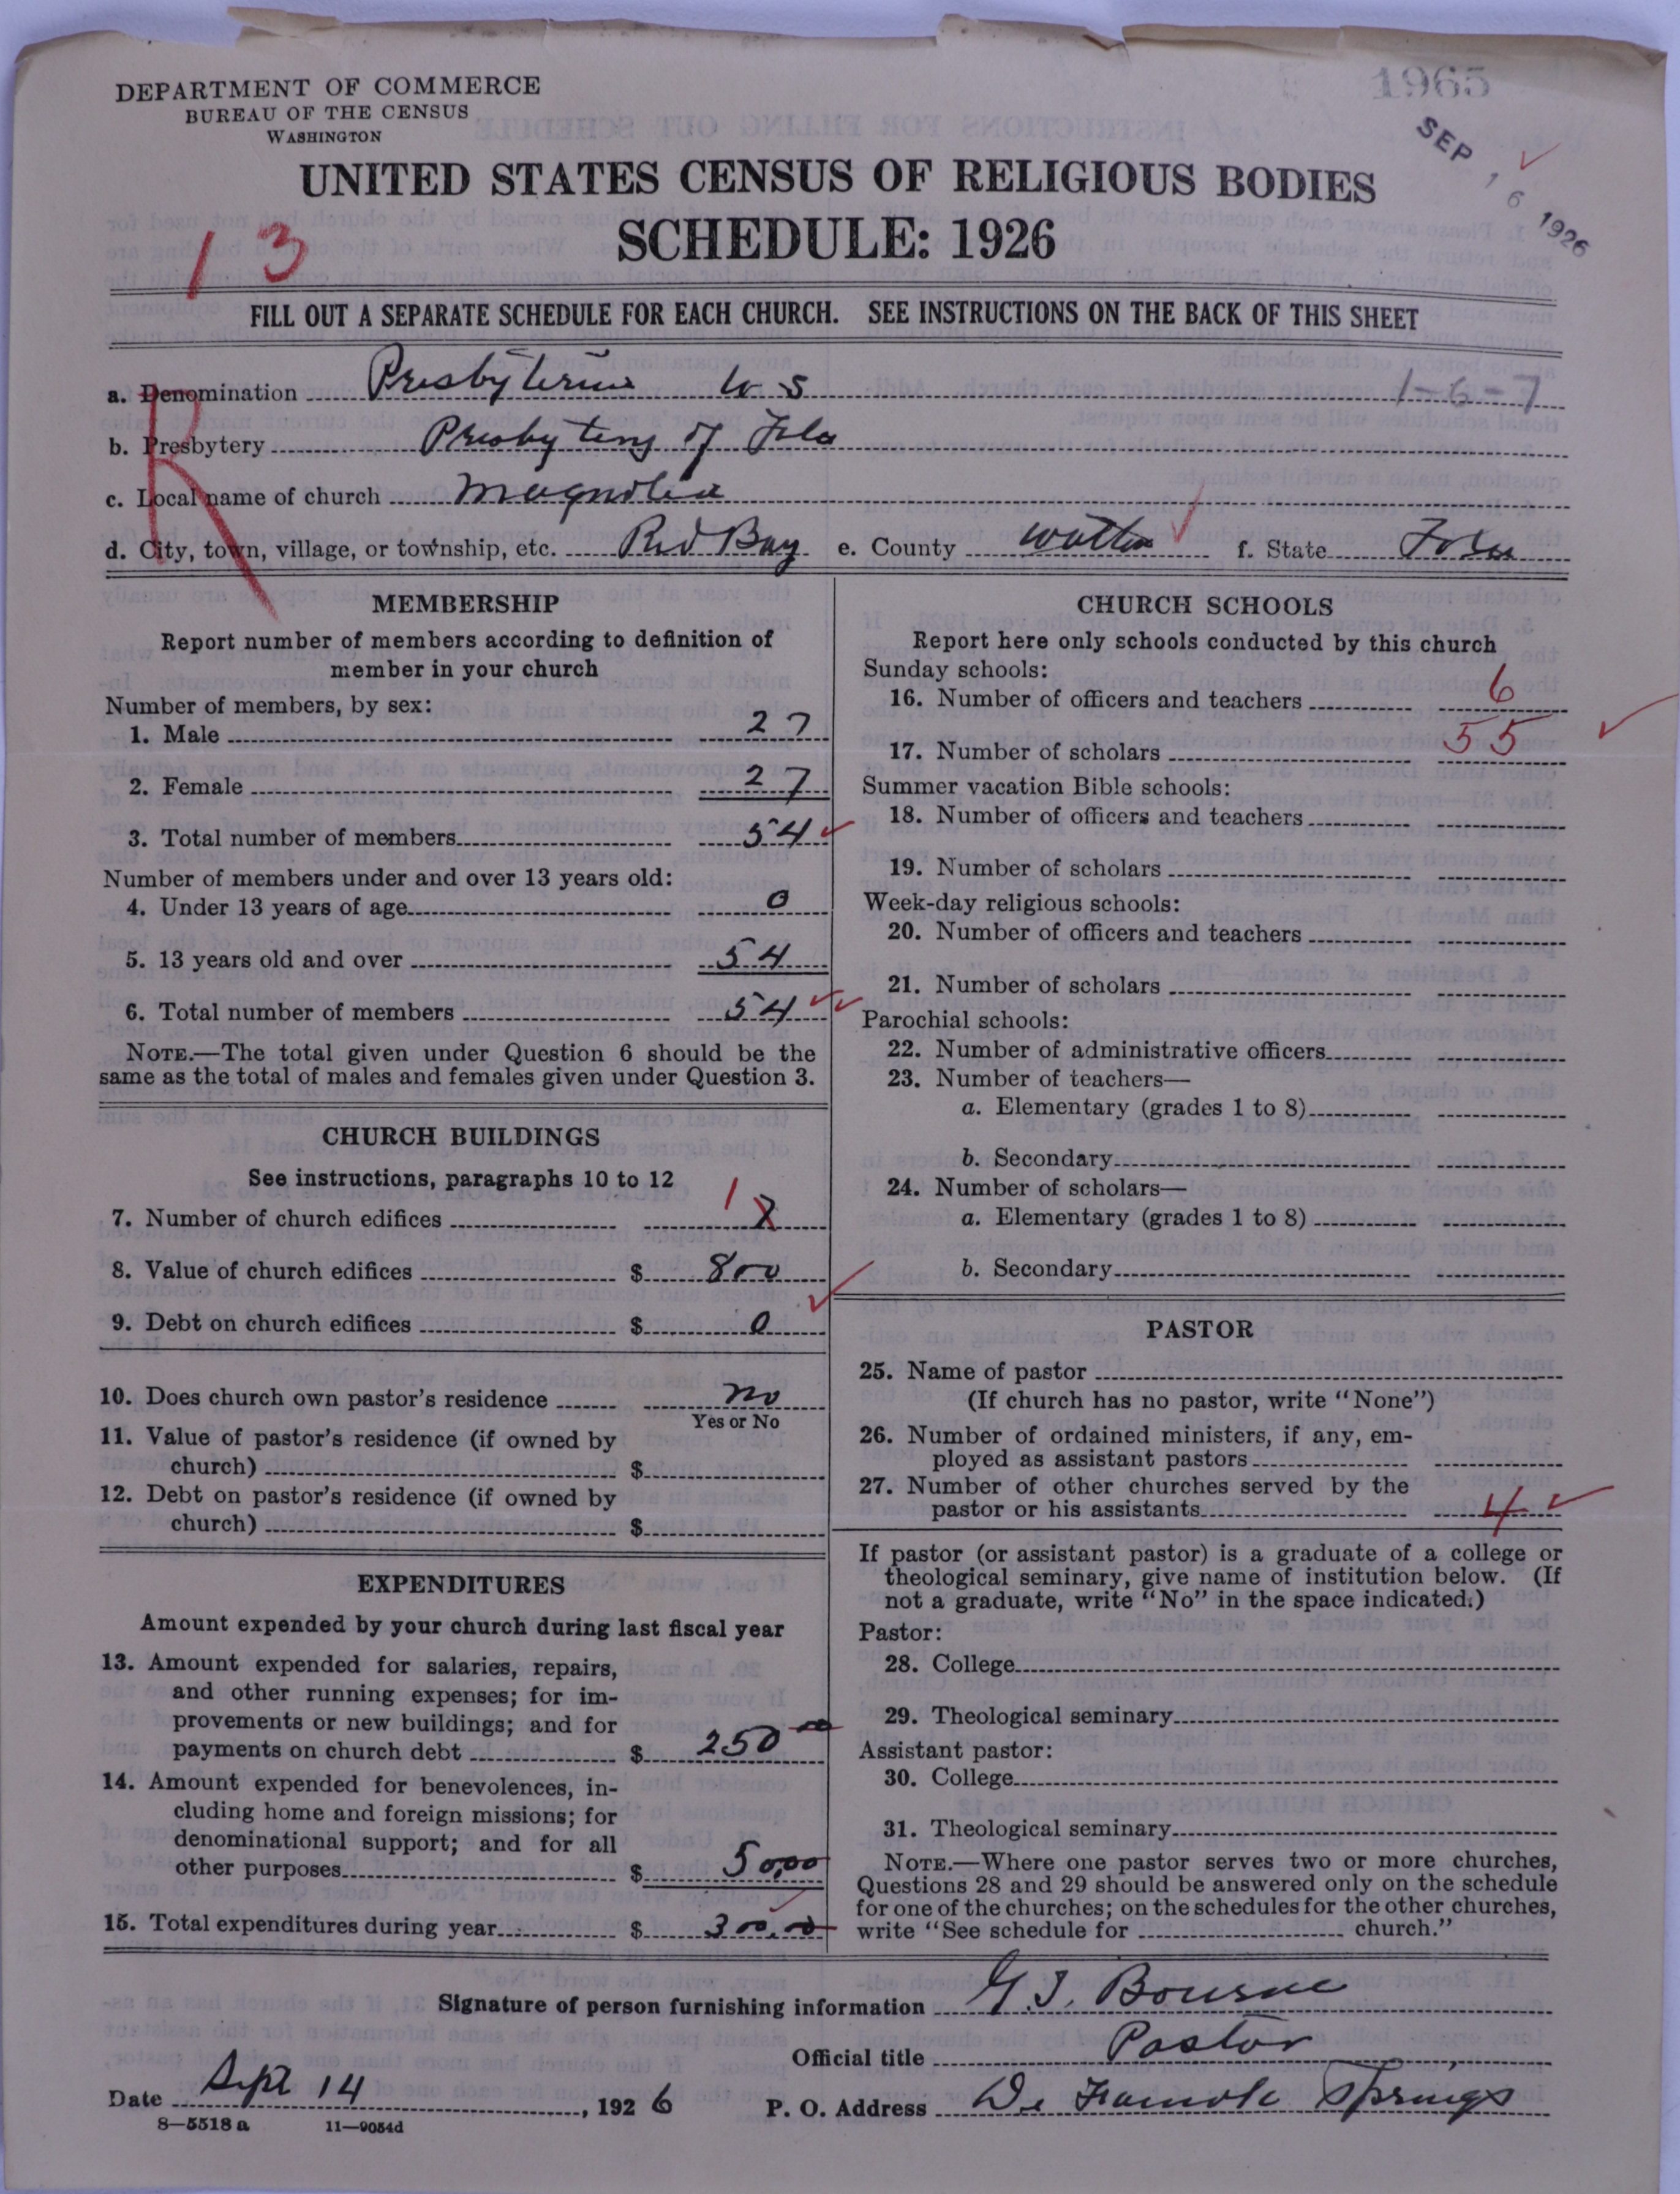 DEPARTMENT OF COMMERCE
BUREAU OF THE CENSUS
WASHINGTON
1965
SEP 16 1926
UNITED STATES CENSUS OF RELIGIOUS BODIES
SCHEDULE: 1926
13
FILL OUT A SEPARATE SCHEDULE FOR EACH CHURCH. SEE INSTRUCTIONS ON THE BACK OF THIS SHEET
R
a. Denomination Presbyterian U S 1-6-7
b. Presbytery Presbytery of Fla
c. Local name of church Magnolia
d. City, town, village, or township, etc. Red Bay e. County Walton f. State Fla
MEMBERSHIP
Report number of members according to definition of
member in your church
Number of members, by sex:
1. Male 27
2. Female 27
3. Total number of members 54
Number of members under and over 13 years old:
4. Under 13 years of age 0
5. 13 years old and over 54
6. Total number of members 54
NOTE.—The total given under Question 6 should be the
same as the total of males and females given under Question 3.
CHURCH BUILDINGS
See instructions, paragraphs 10 to 12
7. Number of church edifices 1
8. Value of church edifices $ 800
9. Debt on church edifices $ 0
10. Does church own pastor's residence no
Yes or No
11. Value of pastor's residence (if owned by
church) $
12. Debt on pastor's residence (if owned by
church) $
EXPENDITURES
Amount expended by your church during last fiscal year
13. Amount expended for salaries, repairs,
and other running expenses; for im-
provements or new buildings; and for
payments on church debt $ 250 00
14. Amount expended for benevolences, in-
cluding home and foreign missions; for
denominational support; and for all
other purposes $ 50.00
15. Total expenditures during year $ 300.00
CHURCH SCHOOLS
Report here only schools conducted by this church
Sunday schools:
16. Number of officers and teachers 6
17. Number of scholars 55
Summer vacation Bible schools:
18. Number of officers and teachers
19. Number of scholars
Week-day religious schools:
20. Number of officers and teachers
21. Number of scholars
Parochial schools:
22. Number of administrative officers
23. Number of teachers—
a. Elementary (grades 1 to 8)
b. Secondary
24. Number of scholars—
a. Elementary (grades 1 to 8)
b. Secondary
PASTOR
25. Name of pastor
(If church has no pastor, write "None")
26. Number of ordained ministers, if any, em-
ployed as assistant pastors
27. Number of other churches served by the
pastor or his assistants 4
If pastor (or assistant pastor) is a graduate of a college or
theological seminary, give name of institution below. (If
not a graduate, write "No" in the space indicated.)
Pastor:
28. College
29. Theological seminary
Assistant pastor:
30. College
31. Theological seminary
NOTE.—Where one pastor serves two or more churches,
Questions 28 and 29 should be answered only on the schedule
for one of the churches; on the schedules for the other churches,
write "See schedule for church."
Signature of person furnishing information G. T. Bourne
Official title Pastor
Date Sept 14, 1926 P. O. Address De Funiak Springs
8—5518 a 11—9054d